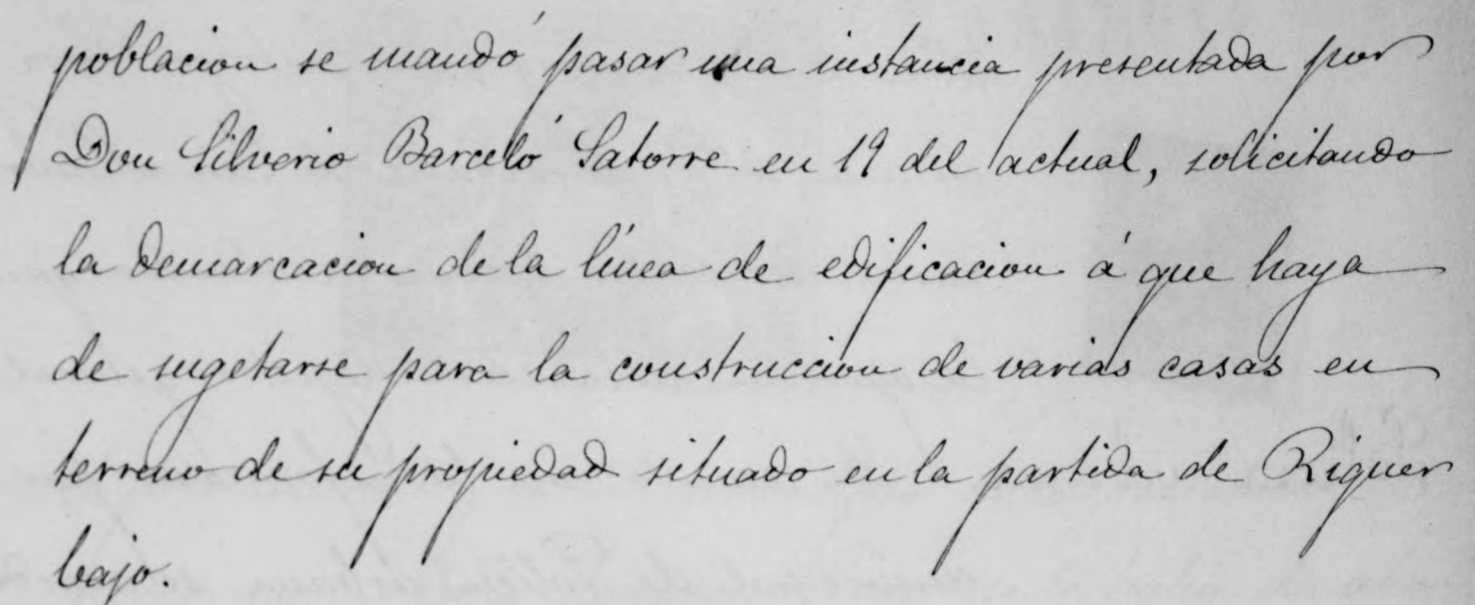 poblacion se mandó pasar una instancia presentada por
Don Silverio Barceló Satorre en 19 del actual, solicitando
la demarcacion de la línea de edificacion á que haya
de sugetarse para la construccion de varias casas en
terreno de su propiedad situado en la partida de Riquer
bajo.